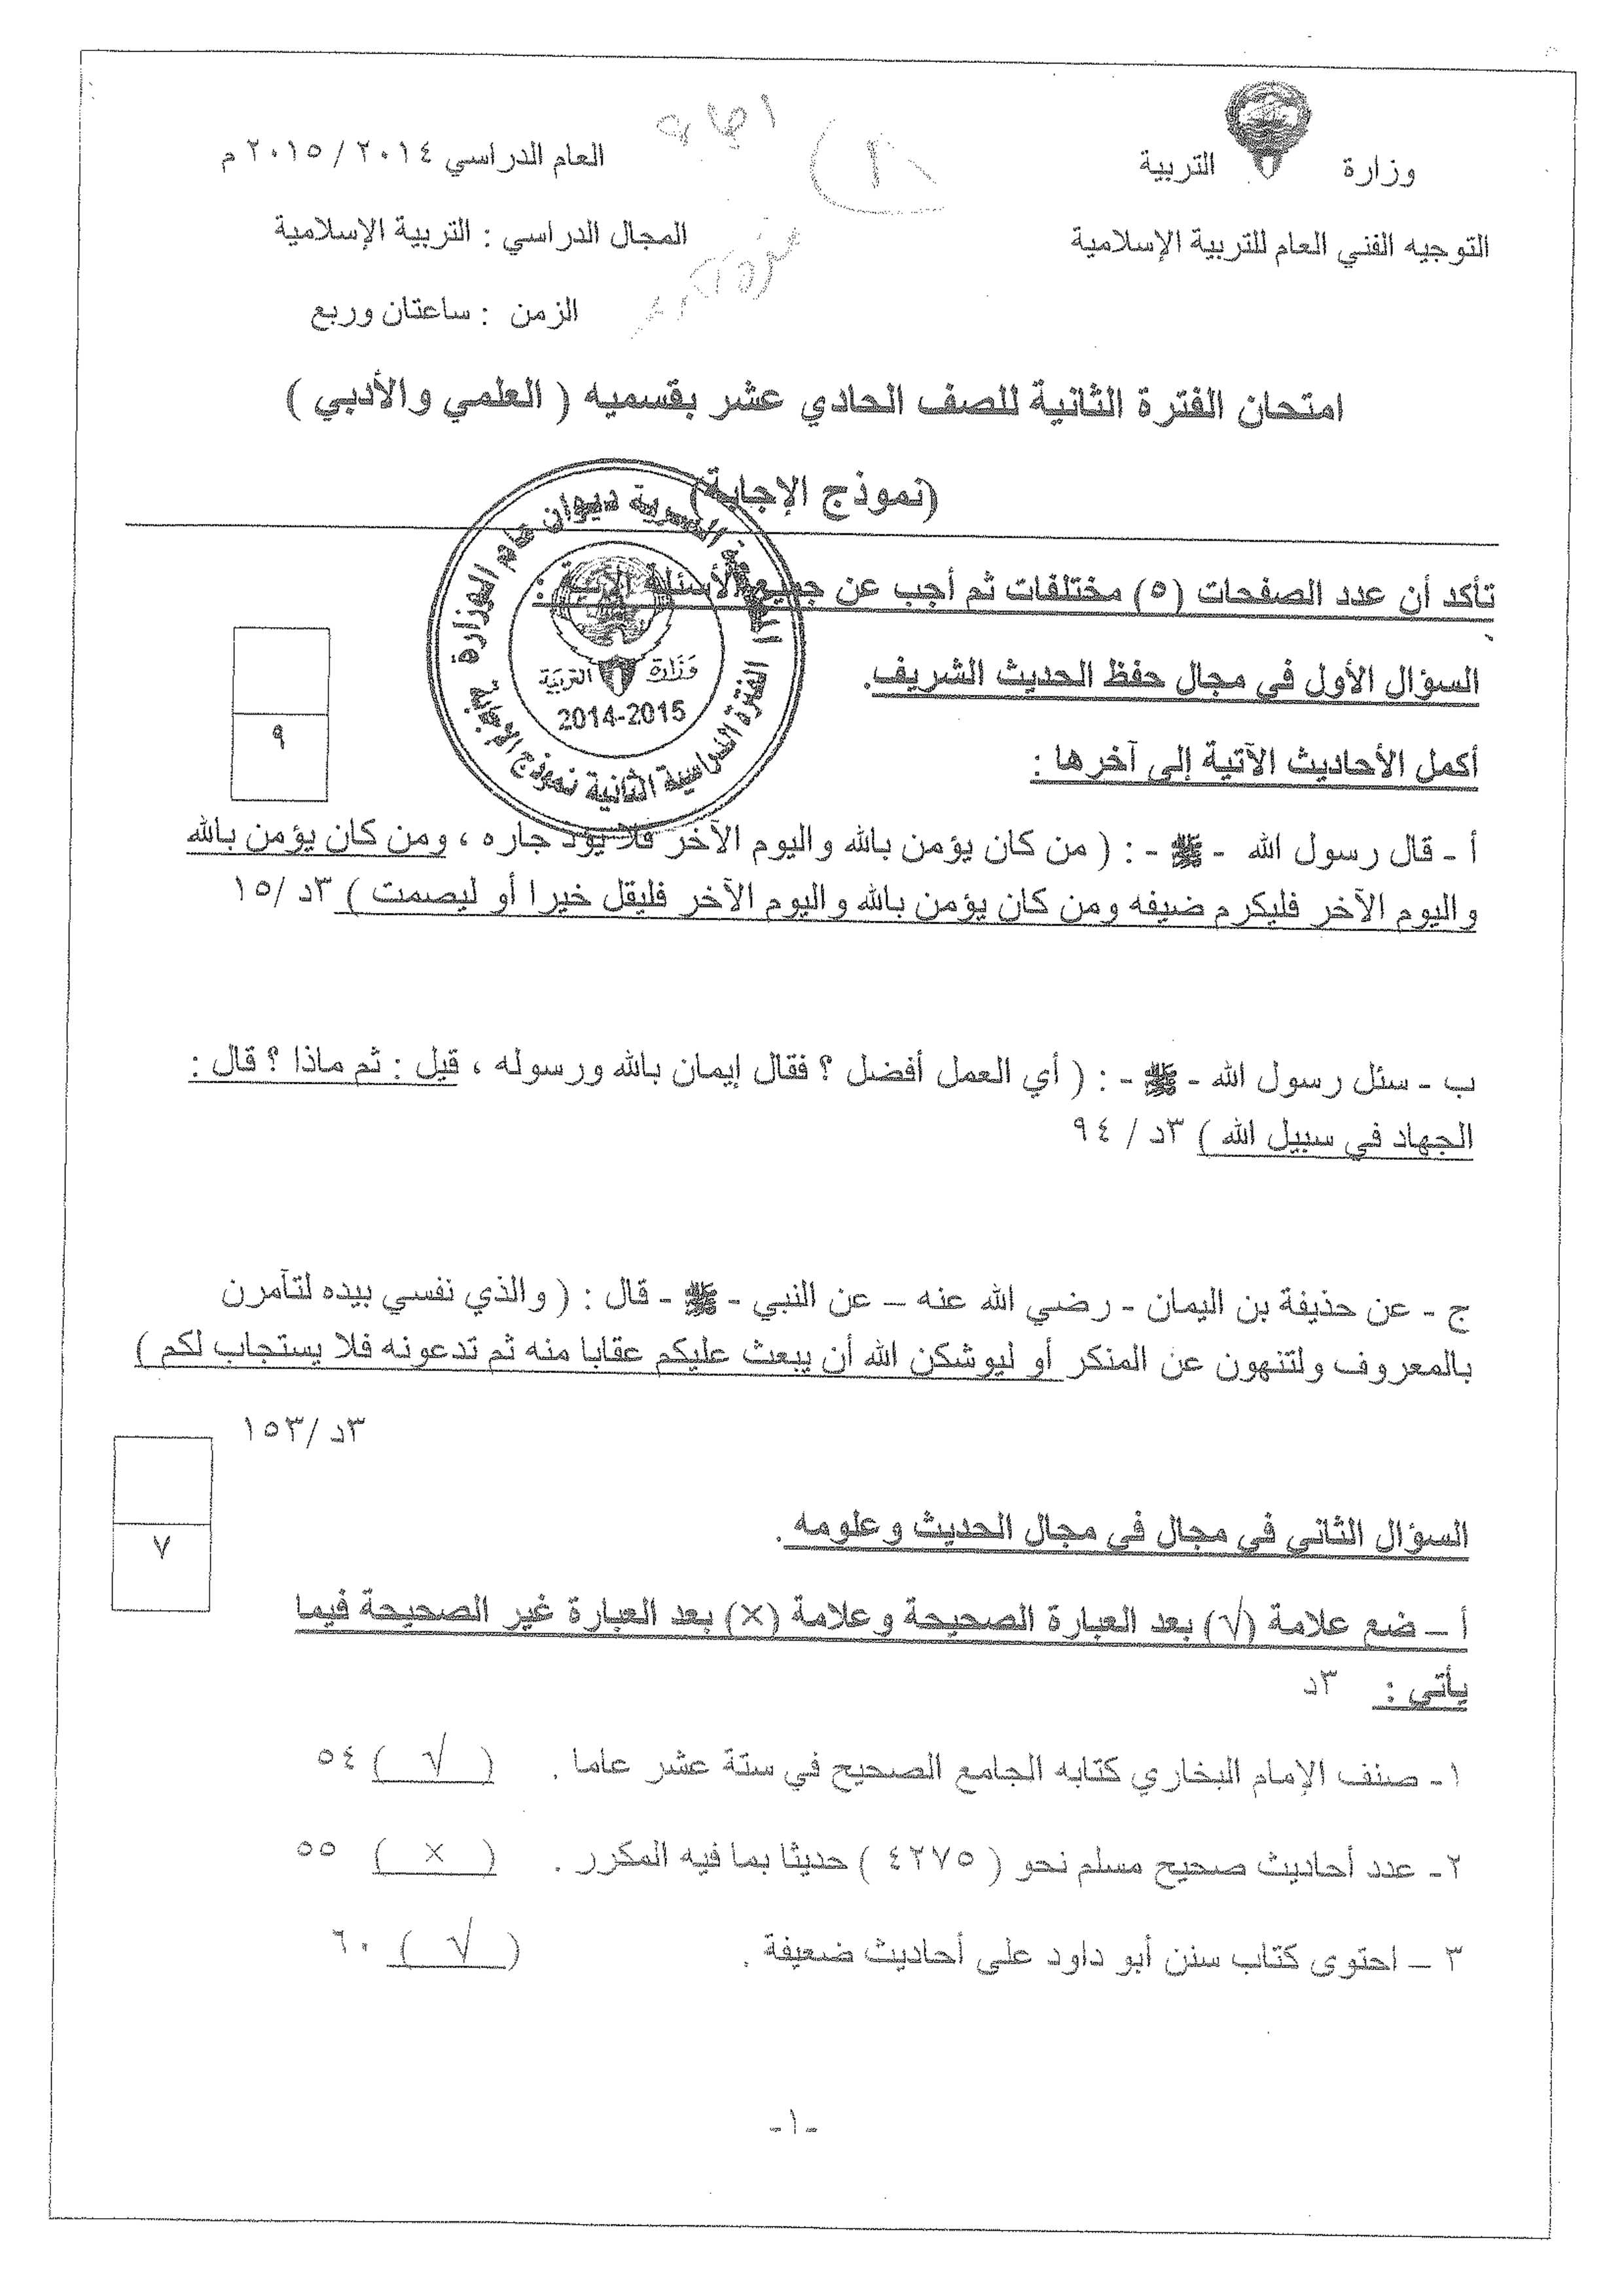 وزارة التربية
العام الدراسي ٢٠١٤ / ٢٠١٥ م
التوجيه الفني العام للتربية الإسلامية
المجال الدراسي : التربية الإسلامية
الزمن : ساعتان وربع
امتحان الفترة الثانية للصف الحادي عشر بقسميه ( العلمي والأدبي )
(نموذج الإجابة)
تأكد أن عدد الصفحات (٥) مختلفات ثم أجب عن جميع الأسئلة الآتية :
السؤال الأول في مجال حفظ الحديث الشريف.
٩
وزارة التربية
2014-2015
أكمل الأحاديث الآتية إلى آخرها :
أ - قال رسول الله - ﷺ - : ( من كان يؤمن بالله واليوم الآخر فلا يؤذ جاره ، ومن كان يؤمن بالله
واليوم الآخر فليكرم ضيفه ومن كان يؤمن بالله واليوم الآخر فليقل خيرا أو ليصمت ) ٣د /١٥
ب - سئل رسول الله - ﷺ - : ( أي العمل أفضل ؟ فقال إيمان بالله ورسوله ، قيل : ثم ماذا ؟ قال :
الجهاد في سبيل الله ) ٣د / ٩٤
ج - عن حذيفة بن اليمان - رضي الله عنه – عن النبي - ﷺ - قال : ( والذي نفسي بيده لتأمرن
بالمعروف ولتنهون عن المنكر أو ليوشكن الله أن يبعث عليكم عقابا منه ثم تدعونه فلا يستجاب لكم )
٣د /١٥٣
السؤال الثاني في مجال في مجال الحديث وعلومه .
٧
أ – ضع علامة (√) بعد العبارة الصحيحة وعلامة (×) بعد العبارة غير الصحيحة فيما
يأتي : ٣د
١- صنف الإمام البخاري كتابه الجامع الصحيح في ستة عشر عاما . ( √ ) ٥٤
٢- عدد أحاديث صحيح مسلم نحو ( ٤٢٧٥ ) حديثا بما فيه المكرر . ( × ) ٥٥
٣ – احتوى كتاب سنن أبو داود على أحاديث ضعيفة . ( √ ) ٦٠
-١-